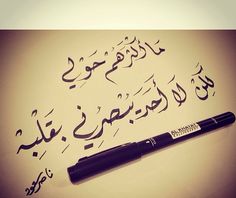 مَا أَكْثَرَهُمْ حَوْلِي
لَكِنْ لَا أَحَدَ يُبْصِرُنِي بِقَلْبِهْ
ناصر سعود